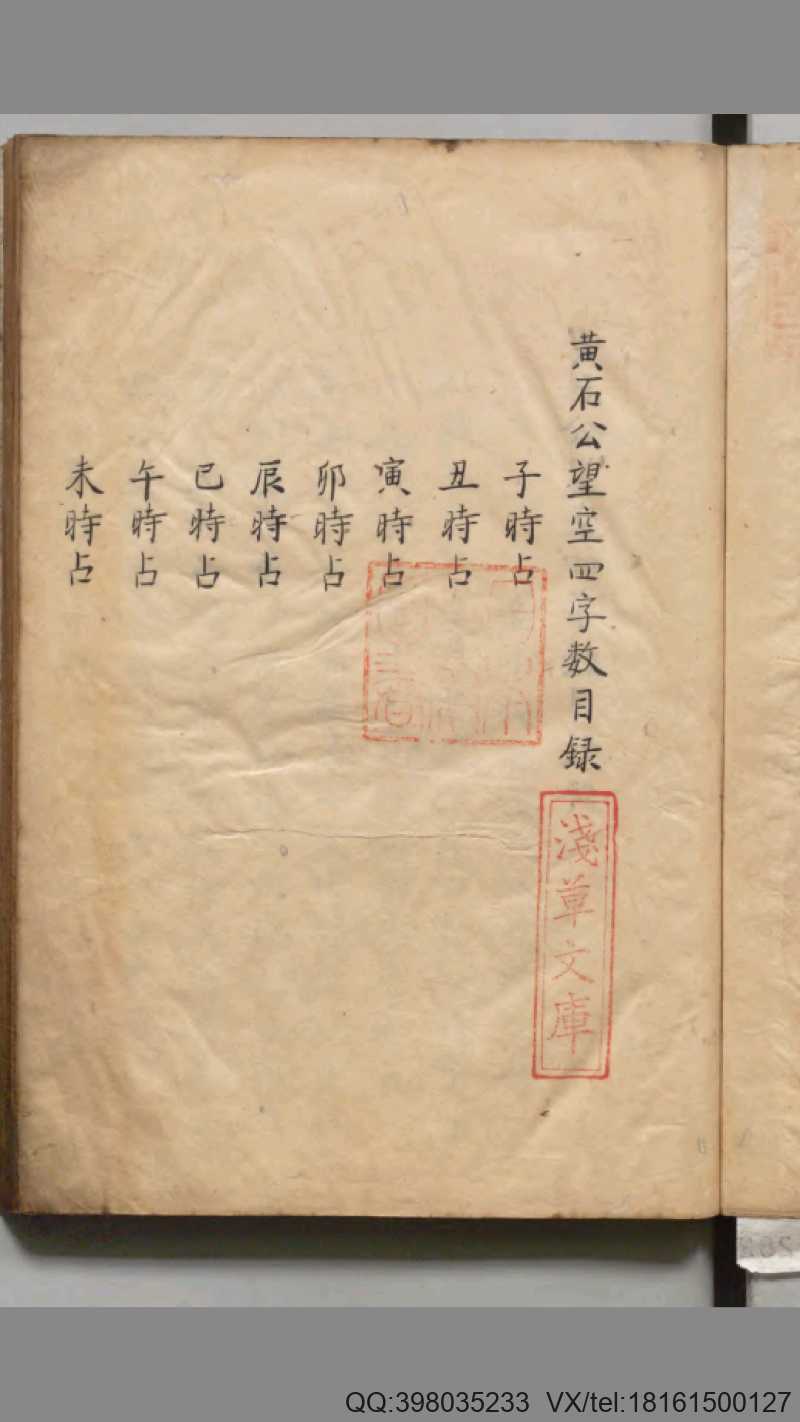 黄石公望空四字数目録
子時占
丑時占
寅時占
卯時占
辰時占
巳時占
午時占
未時占
淺草文庫
QQ:398035233 VX/tel:18161500127